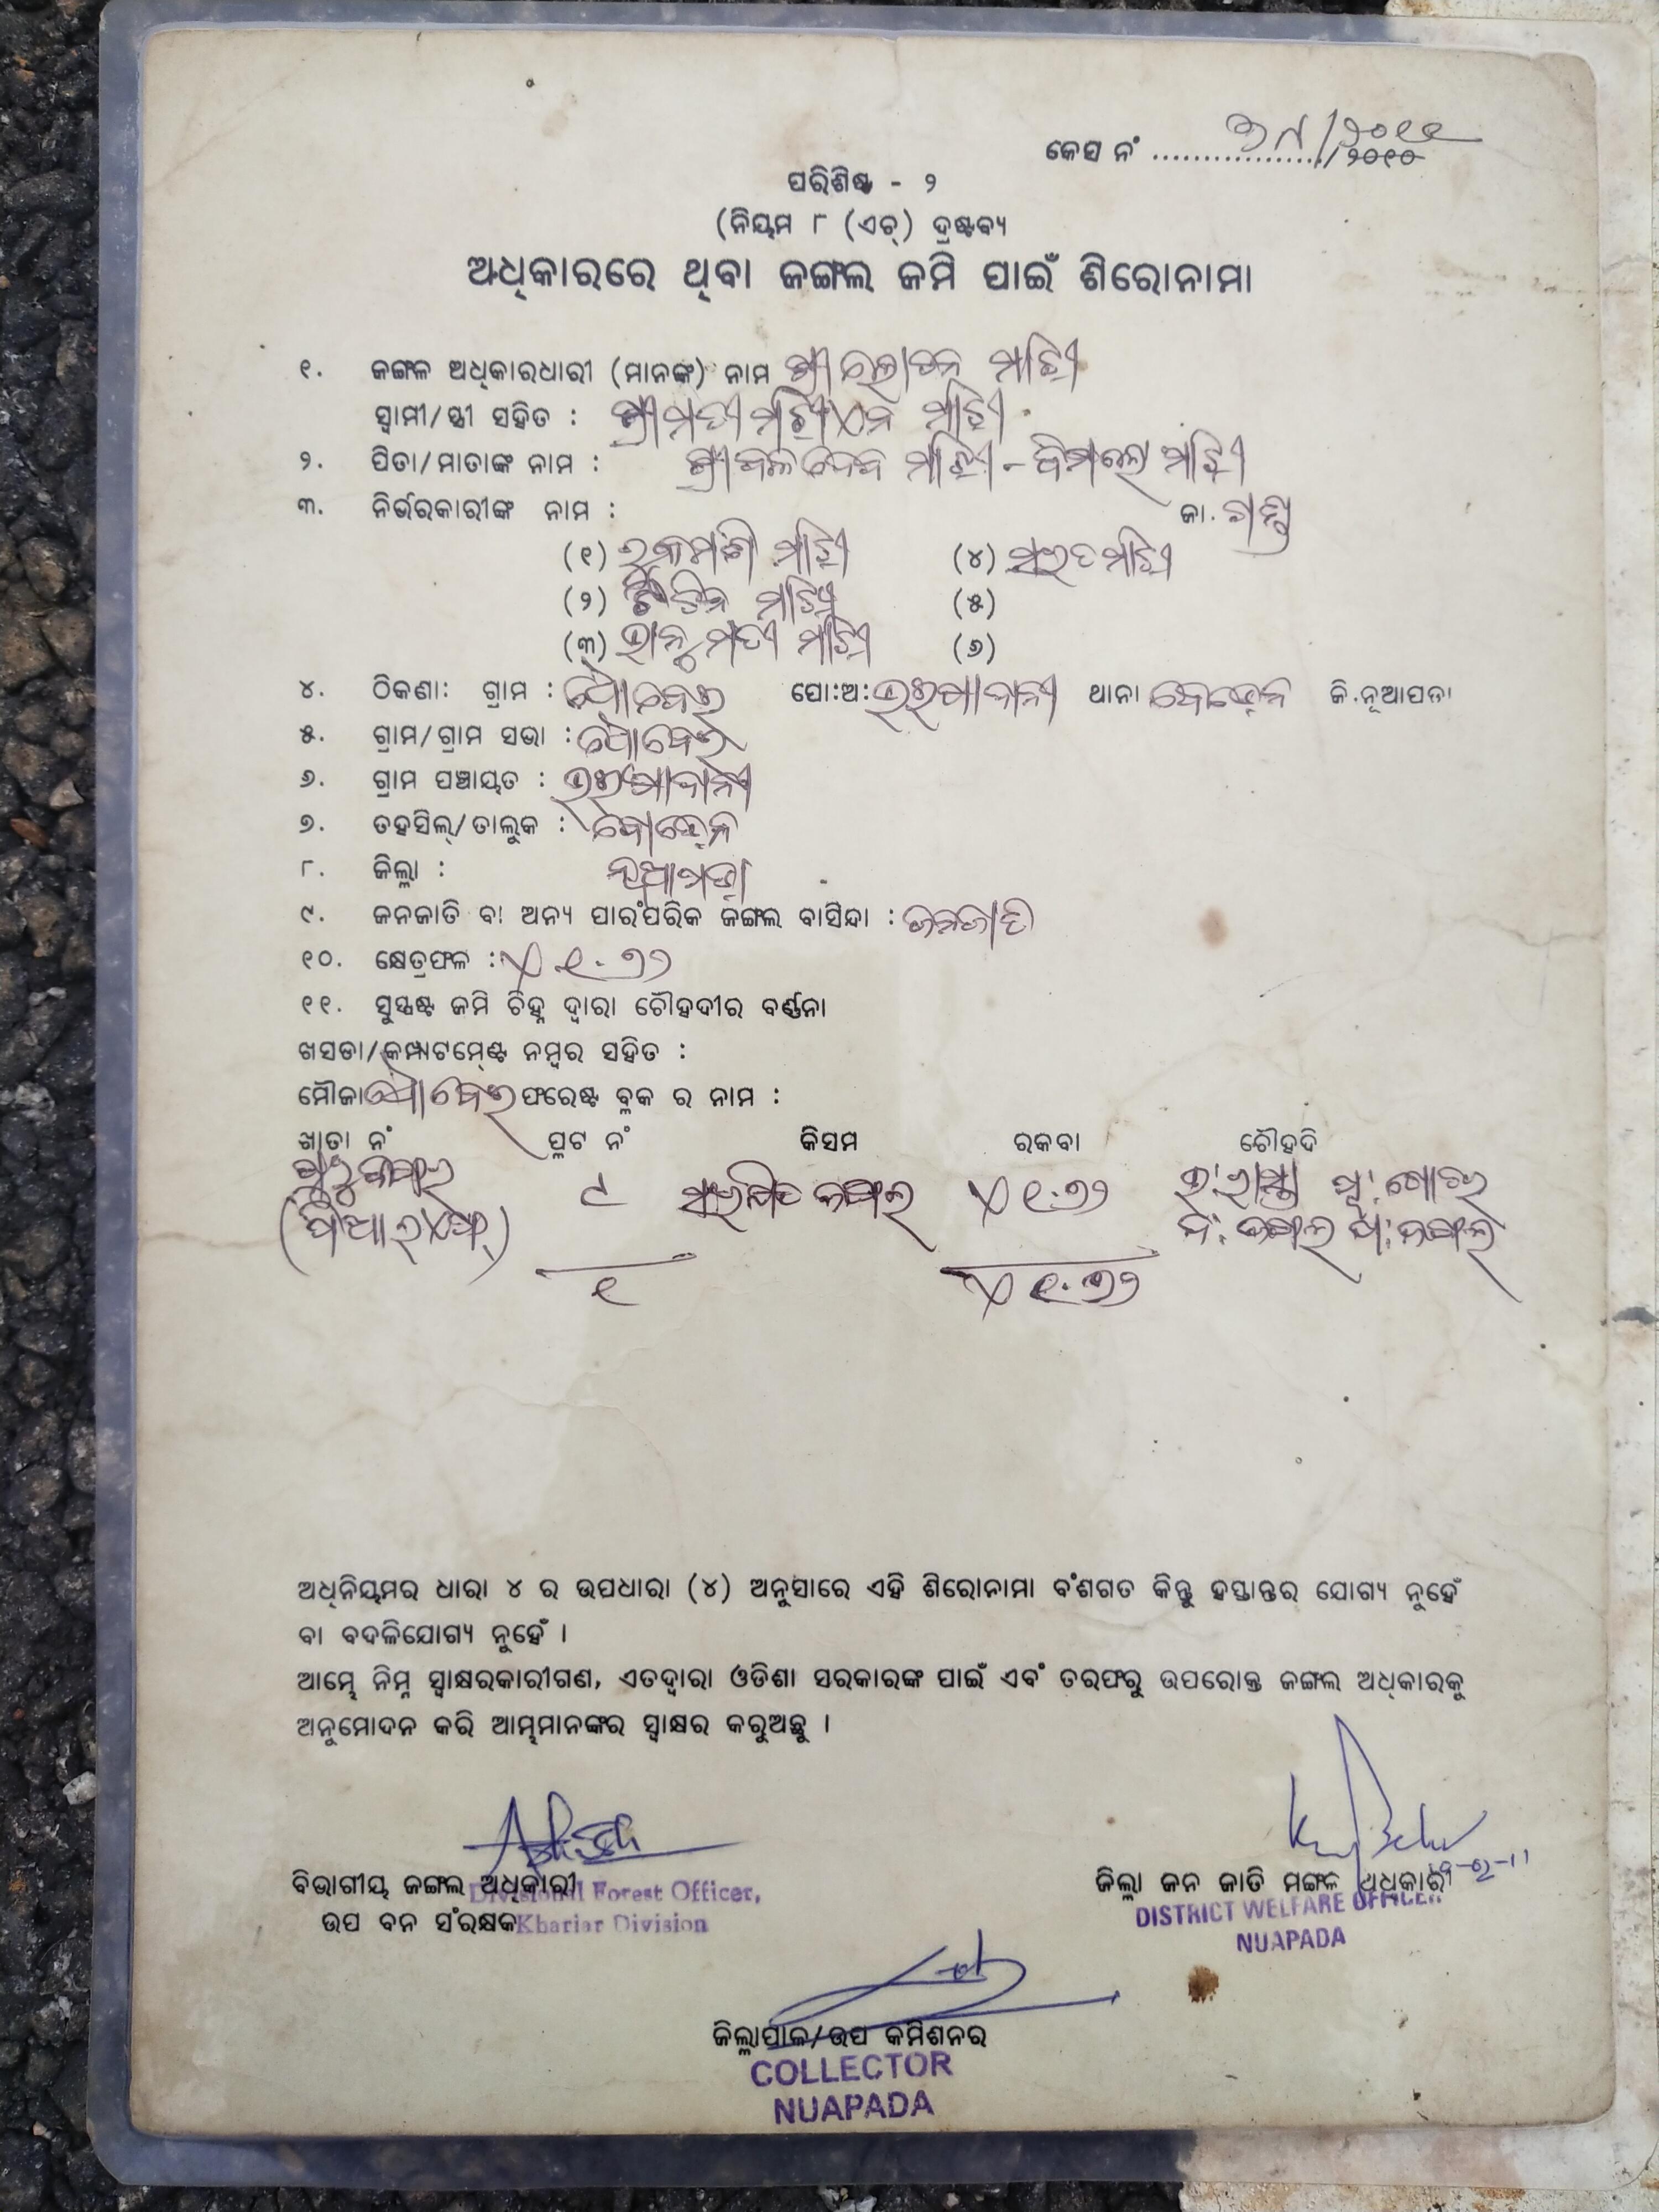 କେସ ନଂ ................../ ୨୦୧୦
ପରିଶିଷ୍ଟ - ୨
(ନିୟମ ୮ (ଏଚ୍) ଦ୍ରଷ୍ଟବ୍ୟ
ଅଧିକାରରେ ଥିବା ଜଙ୍ଗଲ ଜମି ପାଇଁ ଶିରୋନାମା
୧. ଜଙ୍ଗଳ ଅଧିକାରଧାରୀ (ମାନଙ୍କ) ନାମ ଶ୍ରୀ ଲୋଚନ ମାଝି
ସ୍ଵାମୀ/ସ୍ତ୍ରୀ ସହିତ : ଶ୍ରୀମତୀ ମାଝି
୨. ପିତା/ମାତାଙ୍କ ନାମ : ଶ୍ରୀ ବଳଦେବ ମାଝି - ବିମଲା ମାଝି
୩. ନିର୍ଭରକାରୀଙ୍କ ନାମ : ଜା. ଗଣ୍ଡ
(୧) ରୁକମଣି ମାଝି (୪) ସରତ ମାଝି
(୨) ମାଝି (୫)
(୩) ଭାନୁମତୀ ମାଝି (୬)
୪. ଠିକଣା: ଗ୍ରାମ : ପୋ:ଅ: ଥାନା ବୋଡ଼େନ ଜି.ନୂଆପଡା
୫. ଗ୍ରାମ/ଗ୍ରାମ ସଭା :
୬. ଗ୍ରାମ ପଞ୍ଚାୟତ :
୭. ତହସିଲ୍/ତାଲୁକ : ବୋଡ଼େନ
୮. ଜିଲ୍ଲା : ନୂଆପଡ଼ା
୯. ଜନଜାତି ବା ଅନ୍ୟ ପାରଂପରିକ ଜଙ୍ଗଲ ବାସିନ୍ଦା : ଜନଜାତି
୧୦. କ୍ଷେତ୍ରଫଳ : ୧.୭୨
୧୧. ସୁସ୍ପଷ୍ଟ ଜମି ଚିହ୍ନ ଦ୍ଵାରା ଚୌହଦୀର ବର୍ଣ୍ଣନା
ଖସଡା/କମ୍ପାଟମେଣ୍ଟ ନମ୍ବର ସହିତ :
ମୌଜା ଫରେଷ୍ଟ ବ୍ଲକ ର ନାମ :
ଖାତା ନଂ ପ୍ଲଟ ନଂ କିସମ ରକବା ଚୌହଦି
ସଂରକ୍ଷିତ ଜଙ୍ଗଲ ୧.୭୨ ଉ: ରାସ୍ତା ପୂ:
(ପିଆରଏଫ୍) ଦ: ଜଙ୍ଗଲ ପ: ଜଙ୍ଗଲ
୧ ୧.୭୨
ଅଧିନିୟମର ଧାରା ୪ ର ଉପଧାରା (୪) ଅନୁସାରେ ଏହି ଶିରୋନାମା ବଂଶଗତ କିନ୍ତୁ ହସ୍ତାନ୍ତର ଯୋଗ୍ୟ ନୁହେଁ
ବା ବଦଳିଯୋଗ୍ୟ ନୁହେଁ ।
ଆମ୍ଭେ ନିମ୍ନ ସ୍ଵାକ୍ଷରକାରୀଗଣ, ଏତଦ୍ଵାରା ଓଡିଶା ସରକାରଙ୍କ ପାଇଁ ଏବଂ ତରଫରୁ ଉପରୋକ୍ତ ଜଙ୍ଗଲ ଅଧିକାରକୁ
ଅନୁମୋଦନ କରି ଆମ୍ଭମାନଙ୍କର ସ୍ଵାକ୍ଷର କରୁଅଛୁ ।
ବିଭାଗୀୟ ଜଙ୍ଗଲ ଅଧିକାରୀ ଜିଲ୍ଲା ଜନ ଜାତି ମଙ୍ଗଳ ଅଧିକାରୀ
Divisional Forest Officer, DISTRICT WELFARE OFFICER
ଉପ ବନ ସଂରକ୍ଷକ Khariar Division NUAPADA
ଜିଲ୍ଲାପାଳ/ଉପ କମିଶନର
COLLECTOR
NUAPADA